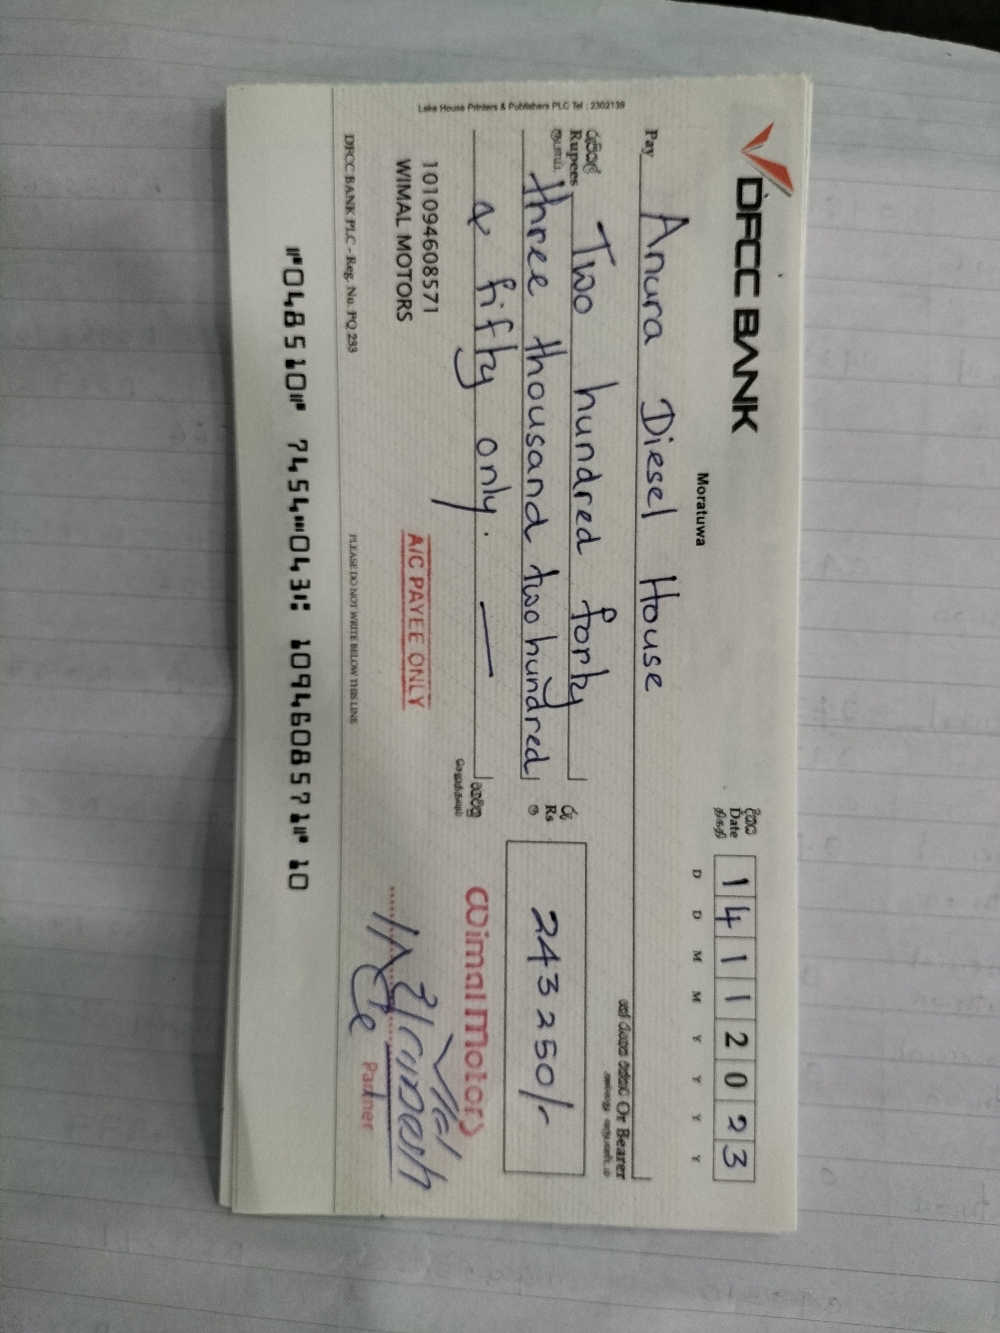 DFCC BANK
Moratuwa
දිනය
Date
திகதி
1 4 1 1 2 0 2 3
D D M M Y Y Y Y
Pay Anura Diesel House
Or Bearer
රුපියල්
Rupees
ரூபாய்
Two hundred forty
three thousand two hundred
& fifty only.
රු
Rs
ரூ
243 250/-
Lake House Printers & Publishers PLC Tel : 2302139
101094608571
WIMAL MOTORS
A/C PAYEE ONLY
Wimal Motors
Partner
DFCC BANK PLC - Reg. No. PQ 233
PLEASE DO NOT WRITE BELOW THIS LINE
⑈048510⑈ 7454⑉043⑆ 109460857⑈ 10